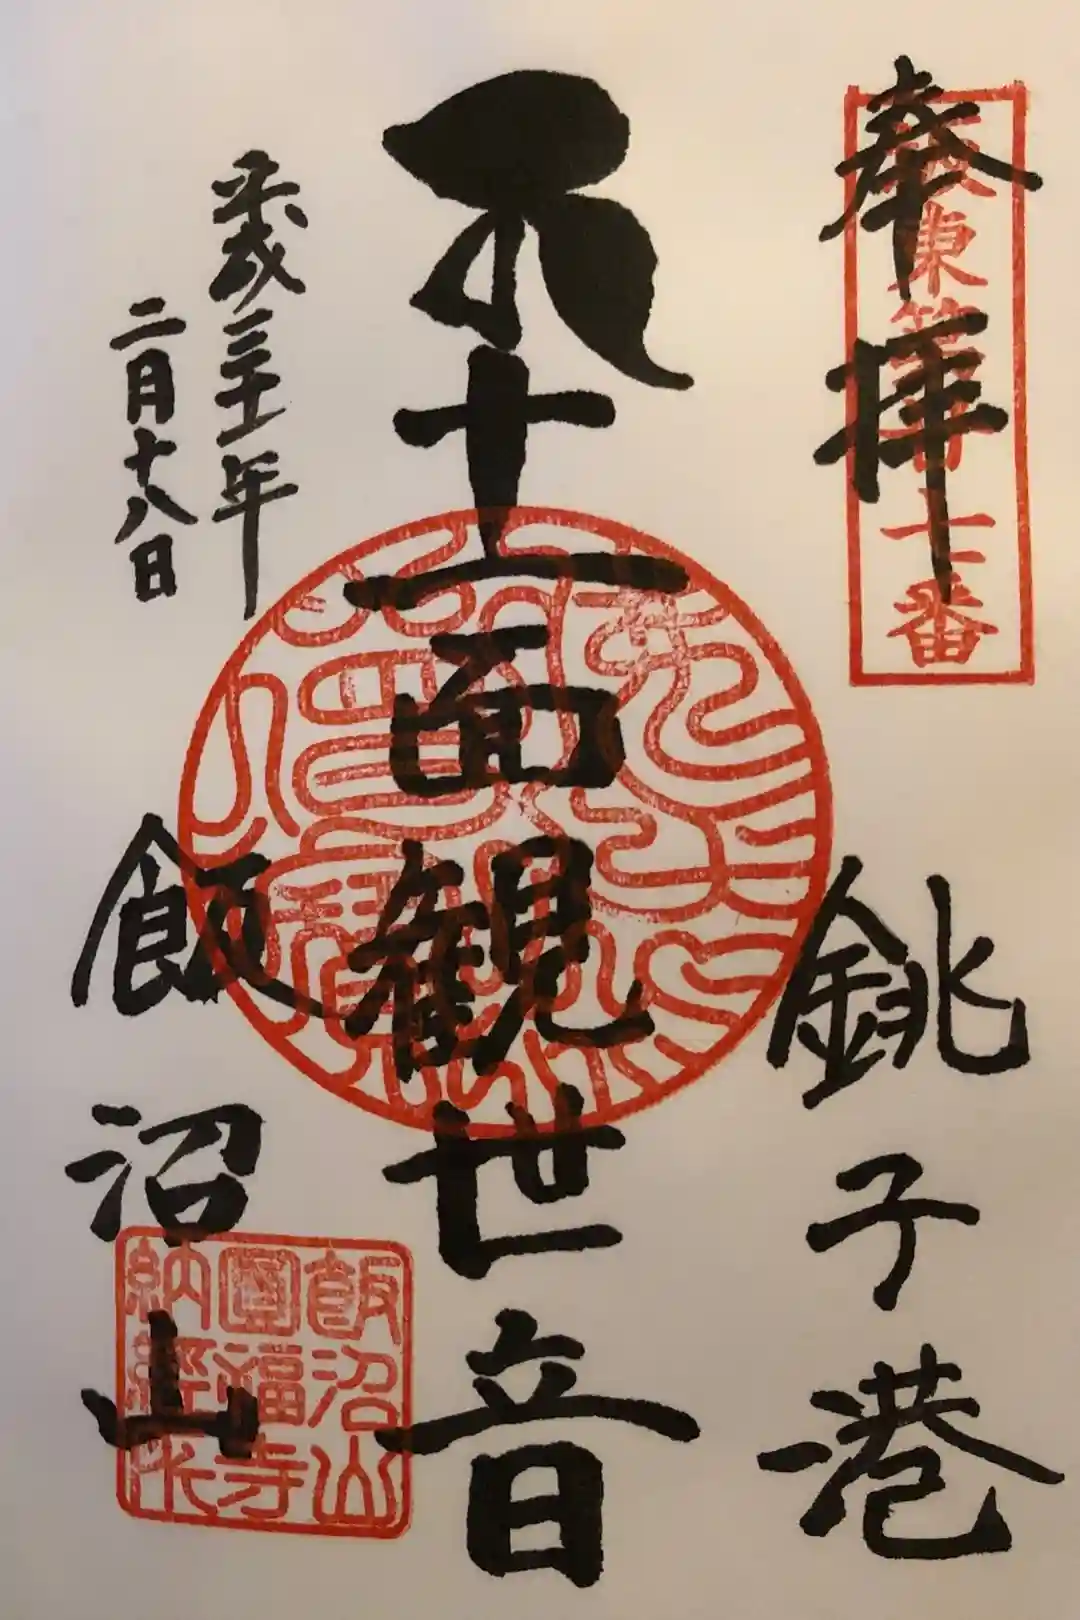 奉拝
坂東第廿七番
銚子港
十一面観世音
平成三十一年
二月十八日
飯沼山
飯沼山
圓福寺
納經印